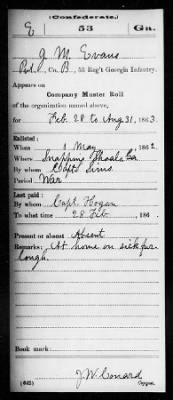 (Confederate.)
E 53 Ga.
J. M. Evans
Pvt., Co. B, 53 Reg't Georgia Infantry.
Appears on
Company Muster Roll
of the organization named above,
for Feb. 28 to Aug 31, 1863.
Enlisted:
When 1 May, 1862
Where Snapping Shoals Ga
By whom Capt. Sims
Period War
Last paid:
By whom Capt. Hogan
To what time 28 Feb, 186
Present or absent Absent
Remarks: At home on sick fur-
lough.
Book mark:
J. W. Conard
(642) Copyist.